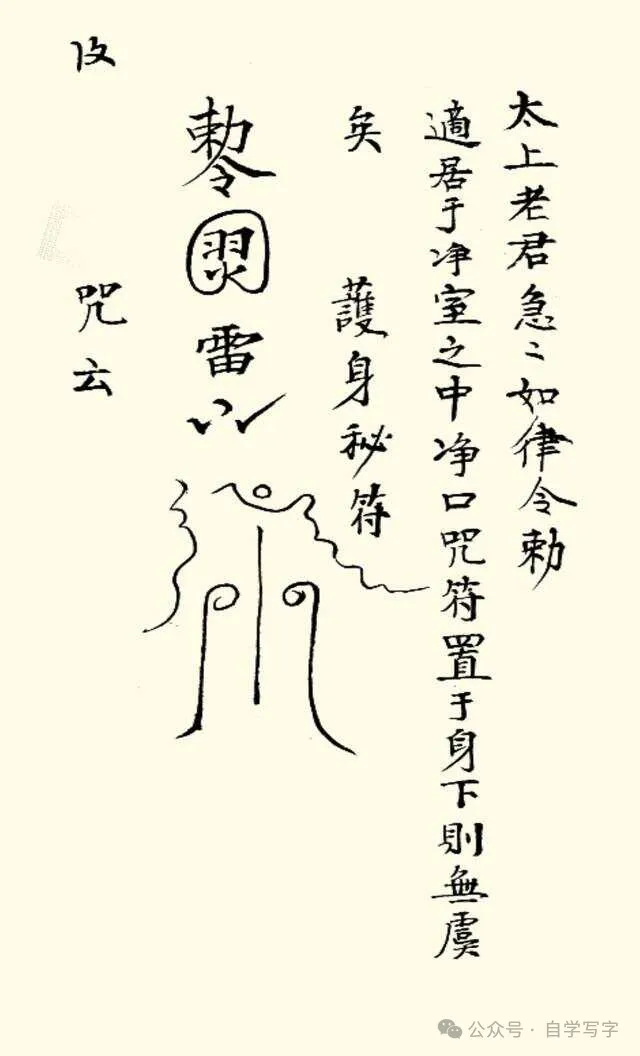 太上老君急〻如律令勅
適居于净室之中净口咒符置于身下則無虞
矣
護身秘符
勅令
雷
咒云
公众号·自学写字